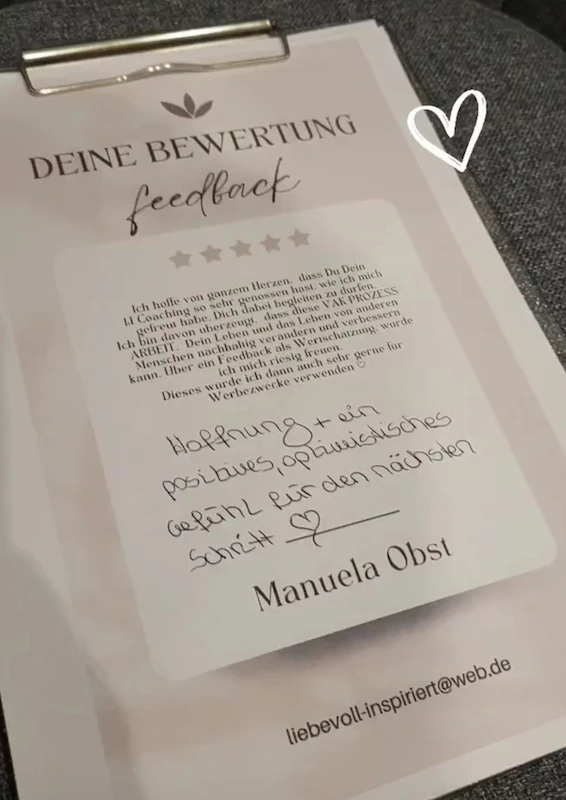 DEINE BEWERTUNG
feedback
Ich hoffe von ganzem Herzen, dass Du Dein
1:1 Coaching so sehr genossen hast, wie ich mich
gefreut habe, Dich dabei begleiten zu dürfen.
Ich bin davon überzeugt, dass diese VAK PROZESS
ARBEIT, Dein Leben und das Leben von anderen
Menschen nachhaltig verändern und verbessern
kann. Über ein Feedback als Wertschätzung, würde
ich mich riesig freuen.
Dieses würde ich dann auch sehr gerne für
Werbezwecke verwenden ♡
Hoffnung + ein
positives, optimistisches
Gefühl für den nächsten
Schritt ♡
Manuela Obst
liebevoll-inspiriert@web.de